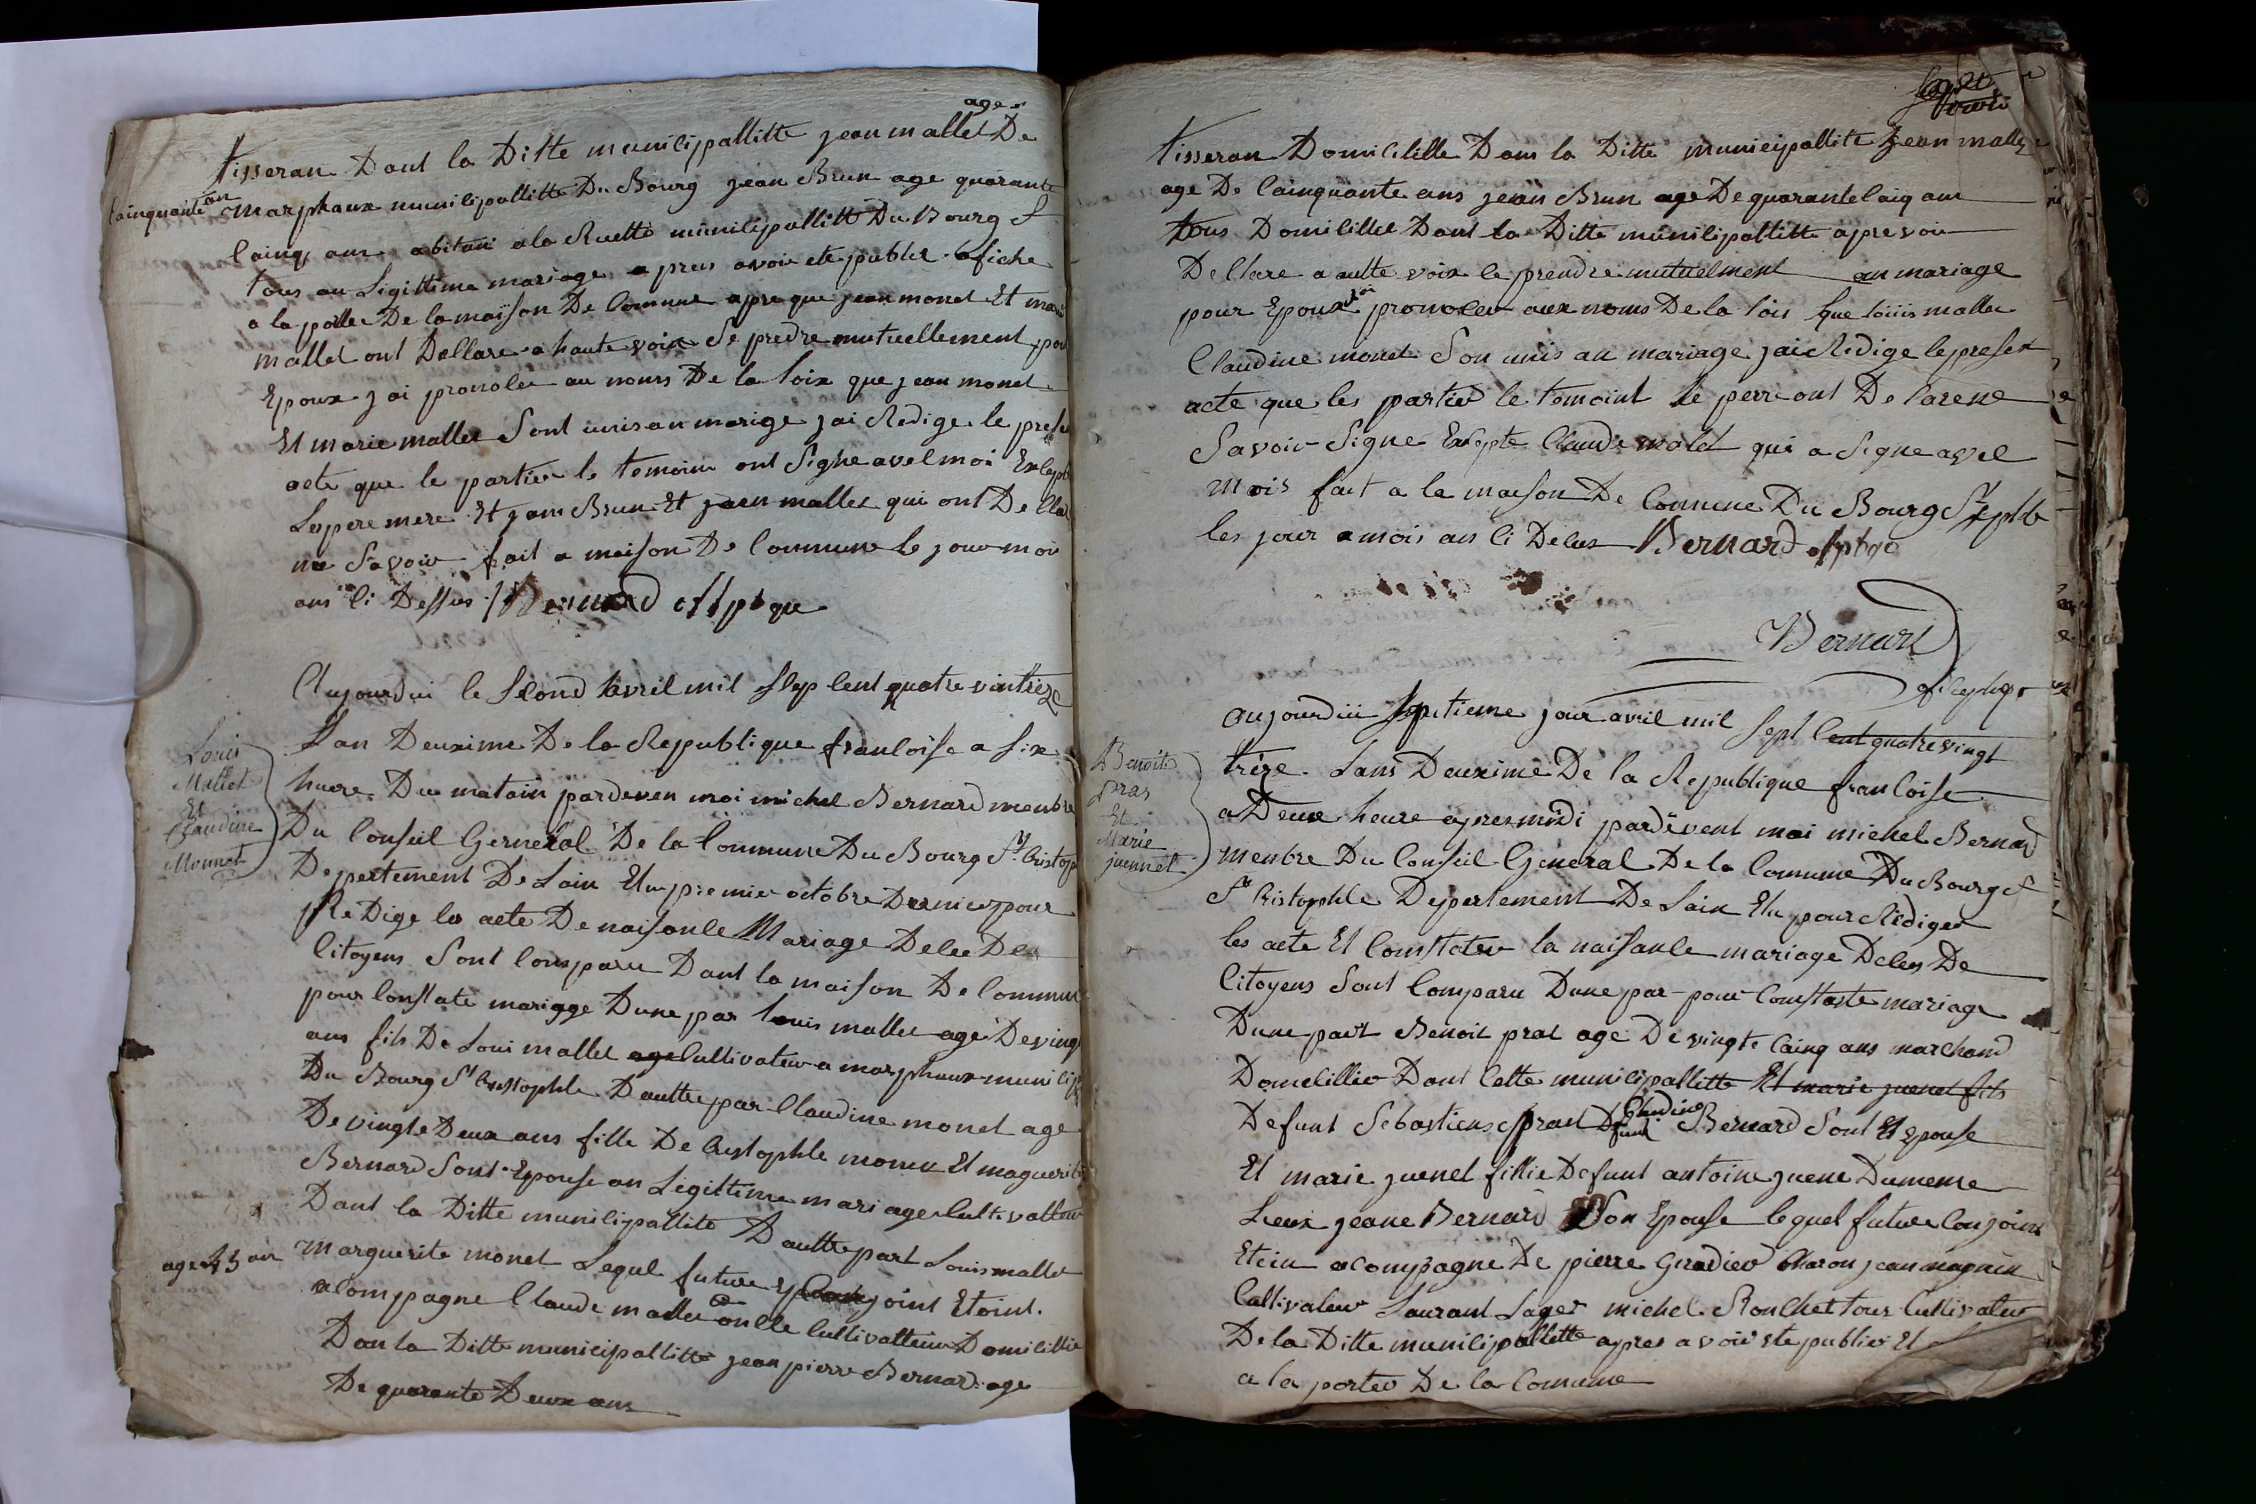 age
tisseran Dant la Ditte municipallitte jean mallet De
Cainquante an
Marphaux municipallitte Du Bourg jean Brun age quarante
Cainq ans abitan a la Ruette municipallitte Du Bourg St
tous au Legittime mariage apres avoir ete publie afiche
a la porte De la maison De Comune apre que jean monet Et marie
mallet ont Dellare a haute voix Se predre mutuellement pour
Epoux jai pronolee au noms De la loix que jean monet
Et marie mallet Sont unis an marige jai Redige le present
acte que le partie le temoins ont Signe avel moi Exlepte
Le pere mere Et jean Brun Et jean mallet qui ont De Clare
ne Savoir fait a maison De Commune le jour moi
ans Ci Dessus Bernard off pbque
Aujourdui le Second Avril mil Sep Cent quatre vintreize
Louis
Mallet
Et
Claudine
Monnet
Lan Deuxime De la Republique francoise a six
huere Du matain pardeven moi michel Bernard menbre
Du Conseil Gerneral De la Commune Du Bourg St Cristop
Depertement De Lain Elu premier octobre Dernier pour
Re Dige les acte De naisanle Mariage Delee Des
Citoyens Sont Comparu Dant la maison De Commune
pour Constate mariage Dune par louis mallet age De vingt
ans fils De Loui mallet age Cultivateur a marphaux municip
Du Bourg St Cristophle Dauttre par Claudine monet age
De vingte Deux ans fille De Cristophle monet Et maguerite
Bernard Sont Epouse an Legittime mariage Cultivatteur
Dant la Ditte municipallite Dauttre part Louis mallet
age 45 an
Marguerite monet Lequel future Conjoint Etoint
acompagne Claude mallet onlle Cultivatteur Domicillie
Dan la Ditte municipallitte jean pierre Bernard age
De quarante Deux ans
tisseran Domicilille Dans la Ditte municipallite Jean mallet
age De Cainquante ans jean Brun age De quarante Caiq ans
tous Domicillie Dant la Ditte municipallitte apre voir
De Clare a autte voix le prendre mutuelment an mariage
pour Epoux jai pronolee aux noms De la lois que louis mallet
Claudine monet Son unis an mariage jai Redige le present
acte que les partie le temoint le perre ont De Larene
Savoir Signe Exlepte Claude malet qui a Signe avel
Mois fait a la maison De Comune Du Bourg St
les jour a mois an Ci Delus Bernard of pbqe
Bernard
of pbqe
Benoit
Pras
Et
Marie
juennet
aujourdui Septieme jour avril mil Sept Cent quatre vingt
treze Lans Deuxime De la Republique francoise
a Deux heure apres midi pardevent moi michel Bernard
menbre Du Conseil General De la Comune Du Bourg St
St Cristophle Depertement De Lain Elu pour Rediger
les acte Et Constater la naisanle mariage Deles De
Citoyens Sont Comparu Dune par pour Constaste mariage
Dune part Benoit prat age De vingte Cainq ans marchand
Domicillie Dant Cette municipallitte Et marie juenet fils
Defunt Sebastiens prat Defunt Claudine Bernard Sont Et Epouse
Et marie juenet fillie Defunt antoine juene Du meme
Lieux jeane Bernard Son Epouse lequel future Conjoint
Etein acompagne De pierre Giradier Charon jean magnin
Cultivateur Laurant Lager michel Ronchet tous Cultivateur
De la Ditte municipallette apres avoir ete publier Et
a la porter De la Comune